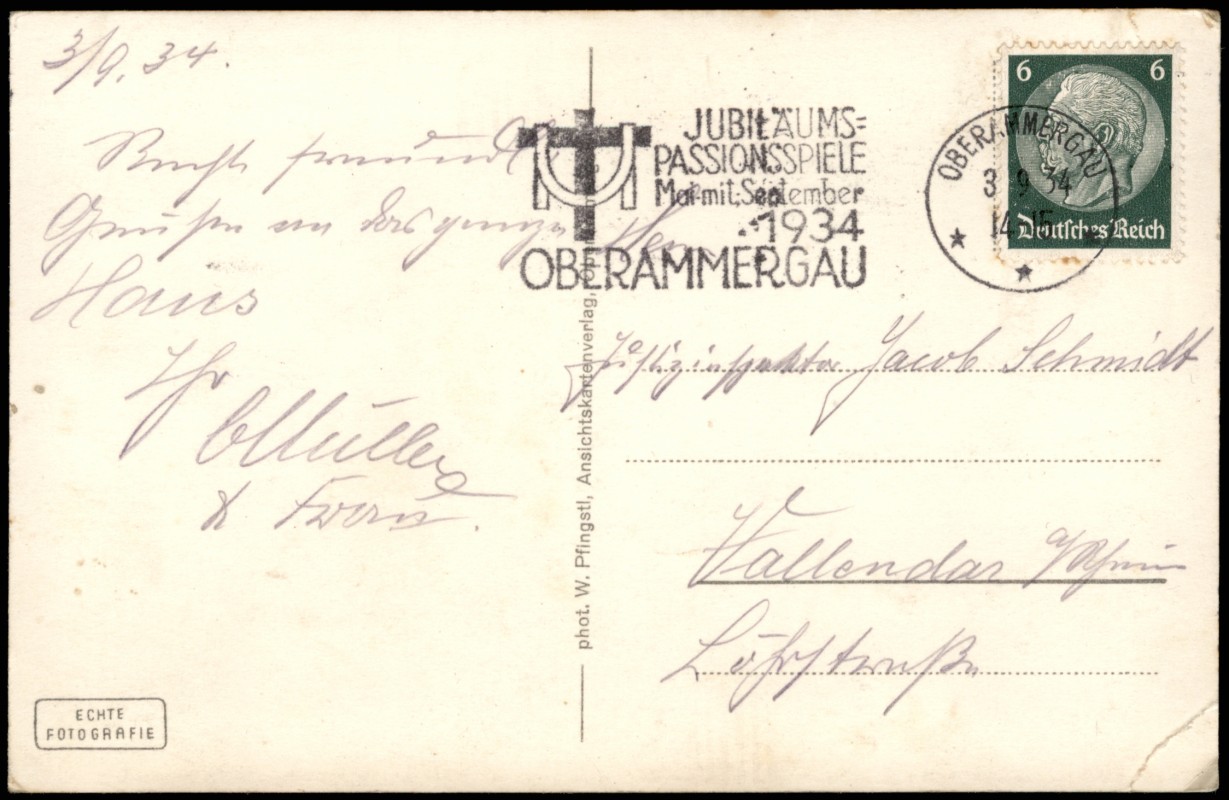 3/9. 34.
Recht freundl
Grüße an das ganze
Haus
Ihr
Müller
& Frau.
JUBILÄUMS=
PASSIONSSPIELE
Mai mit September
1934
OBERAMMERGAU
OBERAMMERGAU
3 9 34
14-15
6 6
Deutsches Reich
Justizinspektor Jacob Schmidt
Vallendar a/Rhein
Löhrstraße
phot. W. Pfingstl, Ansichtskartenverlag,
ECHTE
FOTOGRAFIE